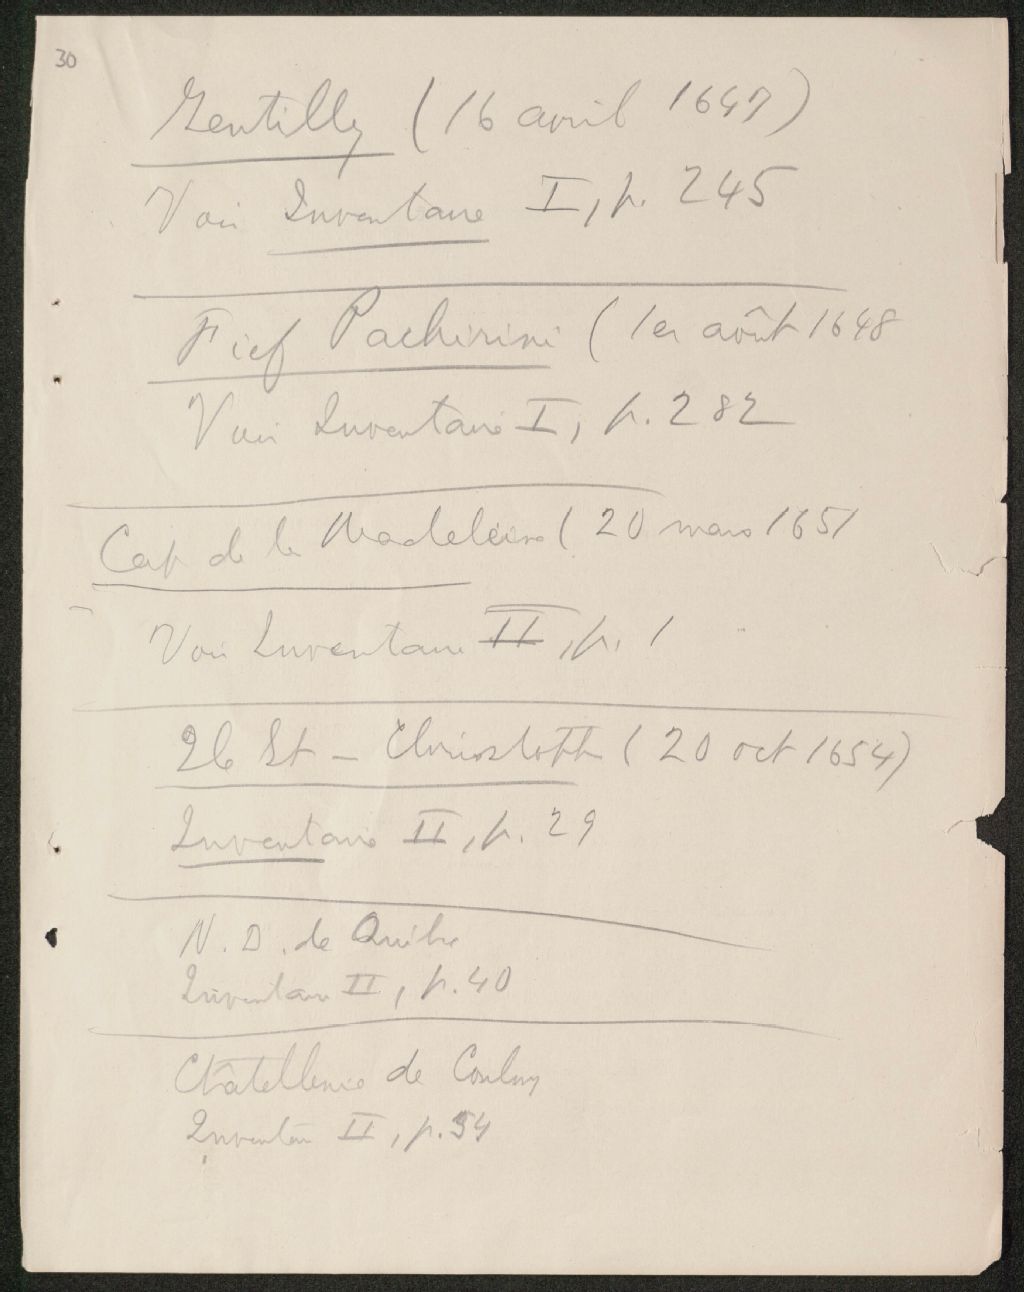 30
Gentilly (16 avril 1647)
Voir Inventaire I, p. 245
Fief Pachirini (1er août 1648
Voir Inventaire I, p. 282
Cap de la Madeleine (20 mars 1651
Voir Inventaire II, p. 1
Ile St-Christophe (20 oct 1654)
Inventaire II, p. 29
N. D. de Québec
Inventaire II, p. 40
Châtellenie de Coulonge
Inventaire II, p. 54